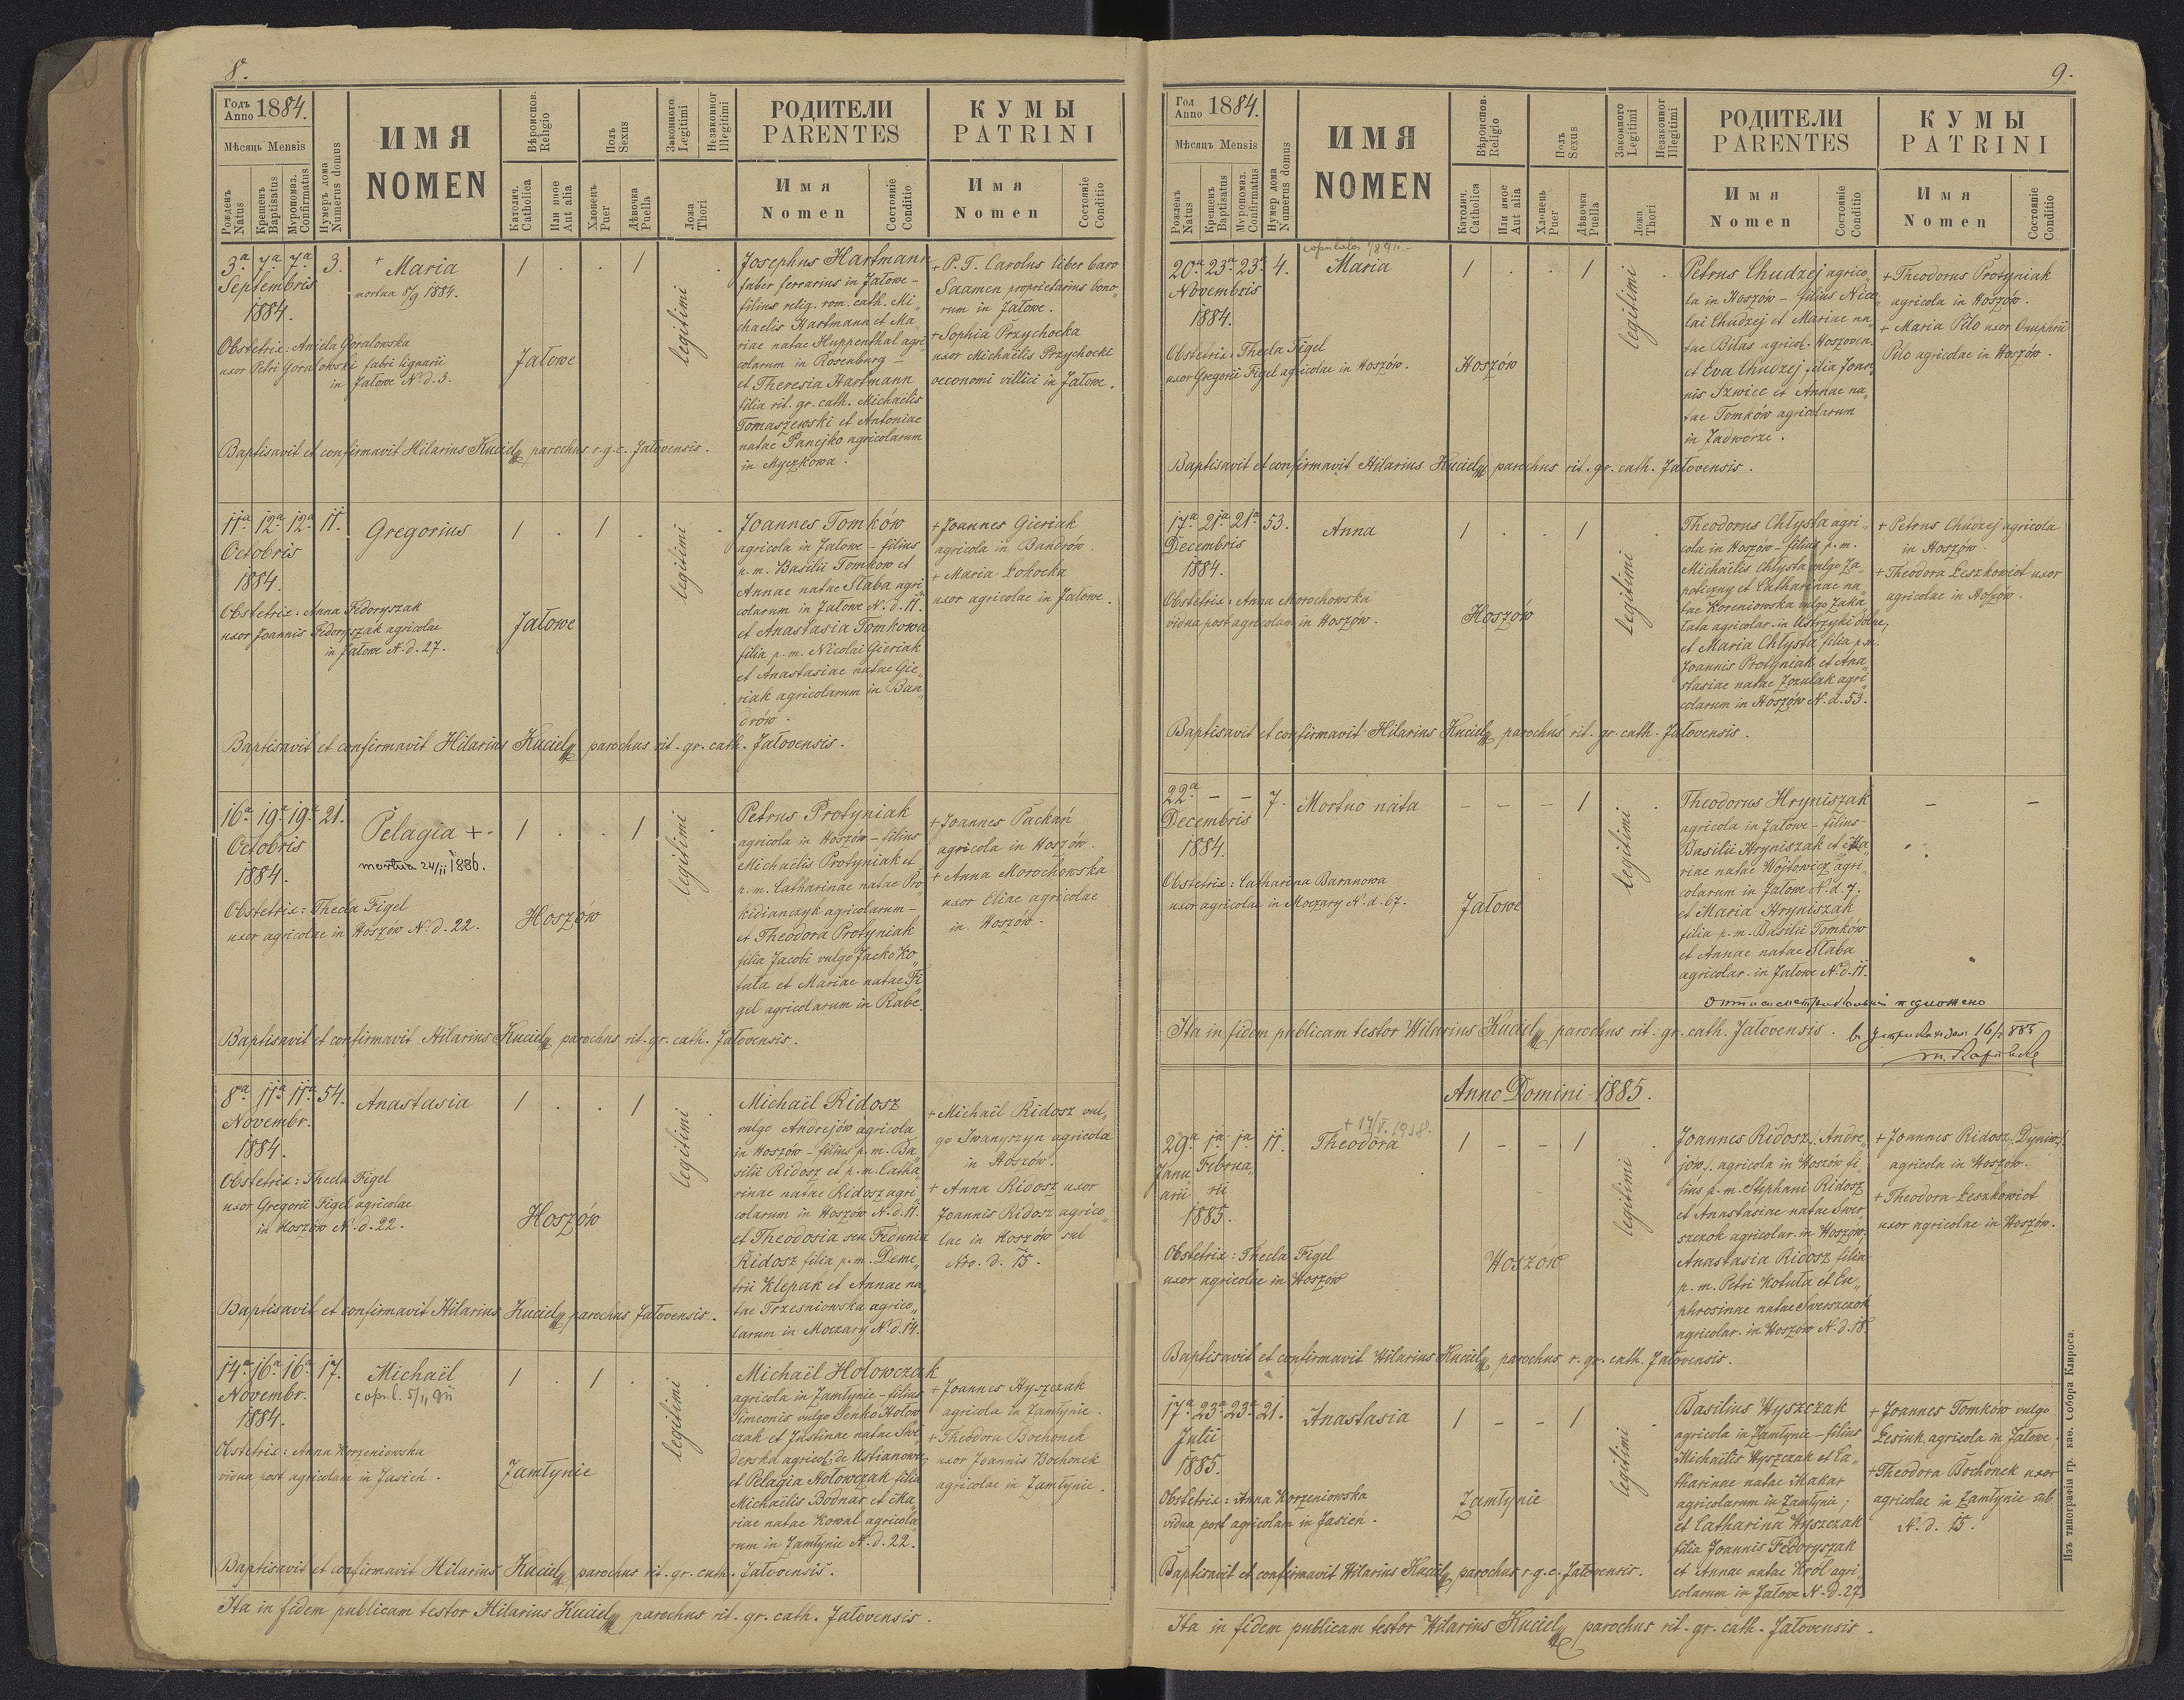 8.
Годъ Anno 1884.
Мѣсяць Mensis
Рожденъ Natus
Крещенъ Baptisatus
Муропомаз. Confirmatus
Нумеръ дома Numerus domus
ИМЯ
NOMEN
Вѣроиспов. Religio
Католич. Catholica
Или иное Aut alia
Полъ Sexus
Хлопецъ Puer
Дѣвочка Puella
Законного Legitimi
Незаконног Illegitimi
Ложа Thori
РОДИТЕЛИ
PARENTES
Имя Nomen
Состояніе Conditio
КУМЫ
PATRINI
Имя Nomen
Состояніе Conditio
3ª 7ª 7ª 3.
Septembris
1884.
+ Maria
mortua 8/9 1884.
1 . . 1
legitimi
Obstetrix: Aniela Goralowska
uxor Petri Goralowski fabri lignarii
in Jałowe N. d. 3.
Jałowe
Josephus Hartmann
faber ferrarius in Jałowe –
filius relig. rom. cath. Mi„
chaelis Hartmann et Ma„
riae natae Huppenthal agri„
colarum in Rosenburg –
et Theresia Hartmann
filia rit. gr. cath. Michaëlis
Tomaszewski et Antoniae
natae Panejko agricolarum
in Myczkowa.
+ P. T. Carolus liber baro
Saamen proprietarius bono„
rum in Jałowe.
+ Sophia Przychocka
uxor Michaëlis Przychocki
oeconomi villici in Jałowe.
Baptisavit et confirmavit Hilarius Kuciel parochus r. g. c. Jałovensis.
11ª 12ª 12ª 11.
Octobris
1884.
Gregorius
1 . 1 .
legitimi
Obstetrix: Anna Fedoryszak
uxor Joannis Fedoryszak agricolae
in Jałowe N. d. 27.
Jałowe
Joannes Tomków
agricola in Jałowe – filius
p. m. Basilii Tomków et
Annae natae Słaba agri„
colarum in Jałowe N. d. 11.
et Anastasia Tomkowa
filia p. m. Nicolai Gieriak
et Anastasiae natae Gie„
riak agricolarum in Ban„
drów.
+ Joannes Gieriak
agricola in Bandrów.
+ Maria Łokocka
uxor agricolae in Jałowe.
Baptisavit et confirmavit Hilarius Kuciel parochus rit. gr. cath. Jałovensis.
16ª 19ª 19ª 21.
Octobris
1884.
Pelagia +
mortua 24/II 1886.
1 . . 1
legitimi
Obstetrix: Thecla Figel
uxor agricolae in Hoszów N. d. 22.
Hoszów
Petrus Protyniak
agricola in Hoszów – filius
Michaëlis Protyniak et
p. m. Catharinae natae Pro
kidianczyk agricolarum –
et Theodora Protyniak
filia Jacobi vulgo Jacko Ko„
tula et Mariae natae Fi
gel agricolarum in Rabe.
+ Joannes Packań
agricola in Hoszów.
+ Anna Morochowska
uxor Eliae agricolae
in Hoszów.
Baptisavit et confirmavit Hilarius Kuciel parochus rit. gr. cath. Jałovensis.
8ª 11ª 11ª 54.
Novembr.
1884.
Anastasia
1 . . 1
legitimi
Obstetrix: Thecla Figel
uxor Gregorii Figel agricolae
in Hoszów N. d. 22.
Hoszów
Michaël Ridosz
vulgo Andrejów agricola
in Hoszów – filius p. m. Ba„
silii Ridosz et p. m. Catha„
rinae natae Ridosz agri„
colarum in Hoszów N. d. 11.
et Theodosia seu Fedunia
Ridosz filia p. m. Deme„
trii Klepak et Annae na„
tae Trzesniowska agrico„
larum in Moczary N. d. 14.
+ Michaël Ridosz vul„
go Iwanyszyn agricola
in Hoszów.
+ Anna Ridosz uxor
Joannis Ridosz agrico„
lae in Hoszów sub
Nro. d. 15.
Baptisavit et confirmavit Hilarius Kuciel parochus Jałovensis.
14ª 16ª 16ª 17.
Novembr.
1884.
Michaël
copul. 5/II 911
1 . 1 .
legitimi
Obstetrix: Anna Korzeniowska
vidua post agricolam in Jasień.
Zamłynie
Michaël Hołowczak
agricola in Zamłynie – filius
Simeonis vulgo Senko Hołow„
czak et Justinae natae Świ„
derska agricol. de Ustianowa,
et Pelagia Hołowczak filia
Michaëlis Bodnar et Ma„
riae natae Kowal agricola„
rum in Zamłynie N. d. 22.
+ Joannes Hyszczak
agricola in Zamłynie.
+ Theodora Bochonek
uxor Joannis Bochonek
agricolae in Zamłynie.
Baptisavit et confirmavit Hilarius Kuciel parochus rit. gr. cath. Jałovensis.
Ita in fidem publicam testor Hilarius Kuciel parochus rit. gr. cath. Jałovensis.
9.
Год Anno 1884.
Мѣсяцъ Mensis
Рожденъ Natus
Крещенъ Baptisatus
Муропомаз. Confirmatus
Нумер дома Numerus domus
ИМЯ
NOMEN
Вѣроиспов. Religio
Католич. Catholica
Или иное Aut alia
Полъ Sexus
Хлопецъ Puer
Дѣвочка Puella
Законного Legitimi
Незаконног Illegitimi
Ложа Thori
РОДИТЕЛИ
PARENTES
Имя Nomen
Состояніе Conditio
КУМЫ
PATRINI
Имя Nomen
Состояніе Conditio
20ª 23ª 23ª 4.
Novembris
1884.
Maria
1 . . 1
legitimi
Obstetrix: Thecla Figel
uxor Gregorii Figel agricolae in Hoszów.
Hoszów
Petrus Chudzej agrico„
la in Hoszów – filius Nico„
lai Chudzej et Mariae na„
tae Biłas agricol. Hoszoven.
et Eva Chudzej filia Joan„
nis Szwiec et Annae na„
tae Tomków agricolarum
in Zadworze.
+ Theodorus Protyniak
agricola in Hoszów.
+ Maria Pilo uxor Onuphrii
Pilo agricolae in Hoszów.
Baptisavit et confirmavit Hilarius Kuciel parochus rit. gr. cath. Jałovensis.
17ª 21ª 21ª 53.
Decembris
1884.
Anna
1 . . 1
legitimi
Obstetrix: Anna Morochowska
vidua post agricolam in Hoszów.
Hoszów
Theodorus Chłysta agri„
cola in Hoszów – filius p. m.
Michaëlis Chłysta vulgo Za„
poticzny et Catharinae na„
tae Koreniowska vulgo Zaka„
łata agricolar. in Ustrzyki dolne;
et Maria Chłysta filia p. m.
Joannis Protyniak et Ana„
stasiae natae Zozulak agri„
colarum in Hoszów N. d. 53.
+ Petrus Chudzej agricola
in Hoszów.
+ Theodora Leszkowiot uxor
agricolae in Hoszów.
Baptisavit et confirmavit Hilarius Kuciel parochus rit. gr. cath. Jałovensis.
22ª – – 7.
Decembris
1884.
Mortuo nata
– – – 1
legitimi
Obstetrix: Catharina Baranowa
uxor agricolae in Moczary N. d. 67.
Jałowe
Theodorus Hryniszak
agricola in Jałowe – filius
Basilii Hryniszak et Ma„
riae natae Wojtowicz agri„
colarum in Jałowe N. d. 7.
et Maria Hryniszak
filia p. m. Basilii Tomków
et Annae natae Słaba
agricolar. in Jałowe N. d. 11.
– –
Ita in fidem publicam testor Hilarius Kuciel parochus rit. gr. cath. Jałovensis.
Anno Domini 1885.
29ª 1ª 1ª 11.
Janu„ Februa„
arii rii
1885.
+ 17/V. 1938.
Theodora
1 – – 1
legitimi
Obstetrix: Thecla Figel
uxor agricolae in Hoszów
Hoszów
Joannes Ridosz /: Andre„
jów :/ agricola in Hoszów fi„
lius p. m. Stephani Ridosz
et Anastasiae natae Swer
szczok agricolar. in Hoszów;
Anastasia Ridosz filia
p. m. Petri Kotuła et Eu„
phrosinae natae Swerszczok
agricolar. in Hoszów N. d. 18.
+ Joannes Ridosz
agricola in Hoszów.
+ Theodora Leszkowiot
uxor agricolae in Hoszów.
Baptisavit et confirmavit Hilarius Kuciel parochus r. gr. cath. Jałovensis.
17ª 23ª 23ª 21.
Julii
1885.
Anastasia
1 – – 1
legitimi
Obstetrix: Anna Korzeniowska
vidua post agricolam in Jasień.
Zamłynie
Basilius Hyszczak
agricola in Zamłynie – filius
Michaëlis Hyszczak et Ca„
tharinae natae Makar
agricolarum in Zamłynie;
et Catharina Hyszczak
filia Joannis Fedoryszak
et Annae natae Król agri„
colarum in Jałowe N. D. 27.
+ Joannes Tomków vulgo
Łesiuk agricola in Jałowe;
+ Theodora Bochonek uxor
agricolae in Zamłynie sub
N. d. 15.
Baptisavit et confirmavit Hilarius Kuciel parochus r. g. c. Jałovensis.
Ita in fidem publicam testor Hilarius Kuciel parochus rit. gr. cath. Jałovensis.
Изъ типографіи гр. каѳ. Собора Клироса.